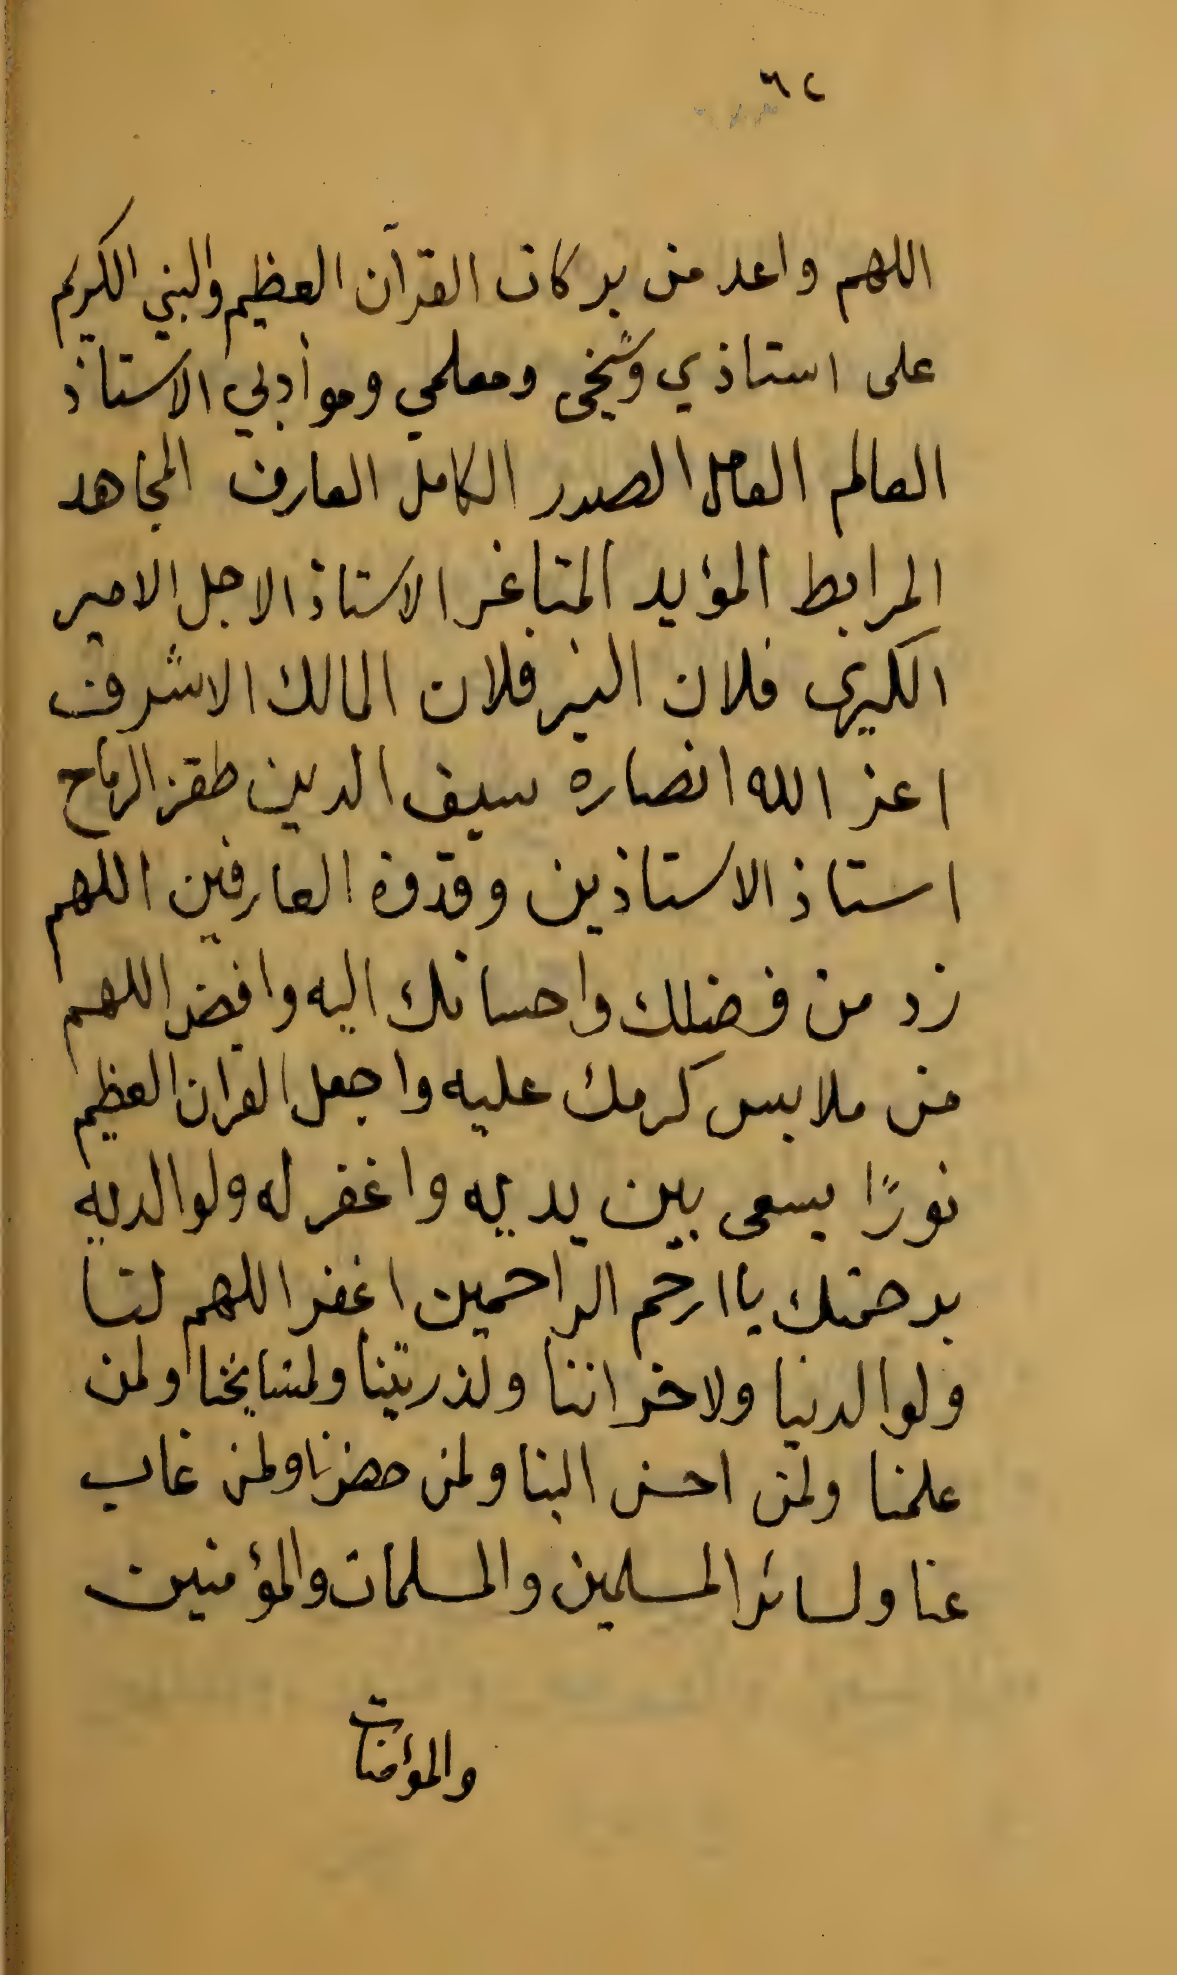 ٦٢
اللهم واعد من بركات القرآن العظيم والنبي الكريم
على استاذي وشيخى ومعلمي ومؤدبي الاستاذ
العالم العامل الصدر الكامل العارف المجاهد
المرابط المؤيد المثاغر الاستاذ الاجل الامير
الكبيرى فلان البر فلان المالك الاشرف
اعز الله انصاره سيف الدين طقز الرماح
استاذ الاستاذين وقدوة العارفين اللهم
زد من فضلك واحسانك اليه وافض اللهم
من ملابس كرمك عليه واجعل القران العظيم
نورًا يسعى بين يديه واغفر له ولوالديه
برحمتك يا ارحم الراحمين اغفر اللهم لنا
ولوالدينا ولاخواننا ولذريتنا ولمشايخنا ولمن
علمنا ولمن احسن الينا ولمن حضرنا ولمن غاب
عنا ولسائر المسلمين والمسلمات والمؤمنين
والمؤمنات